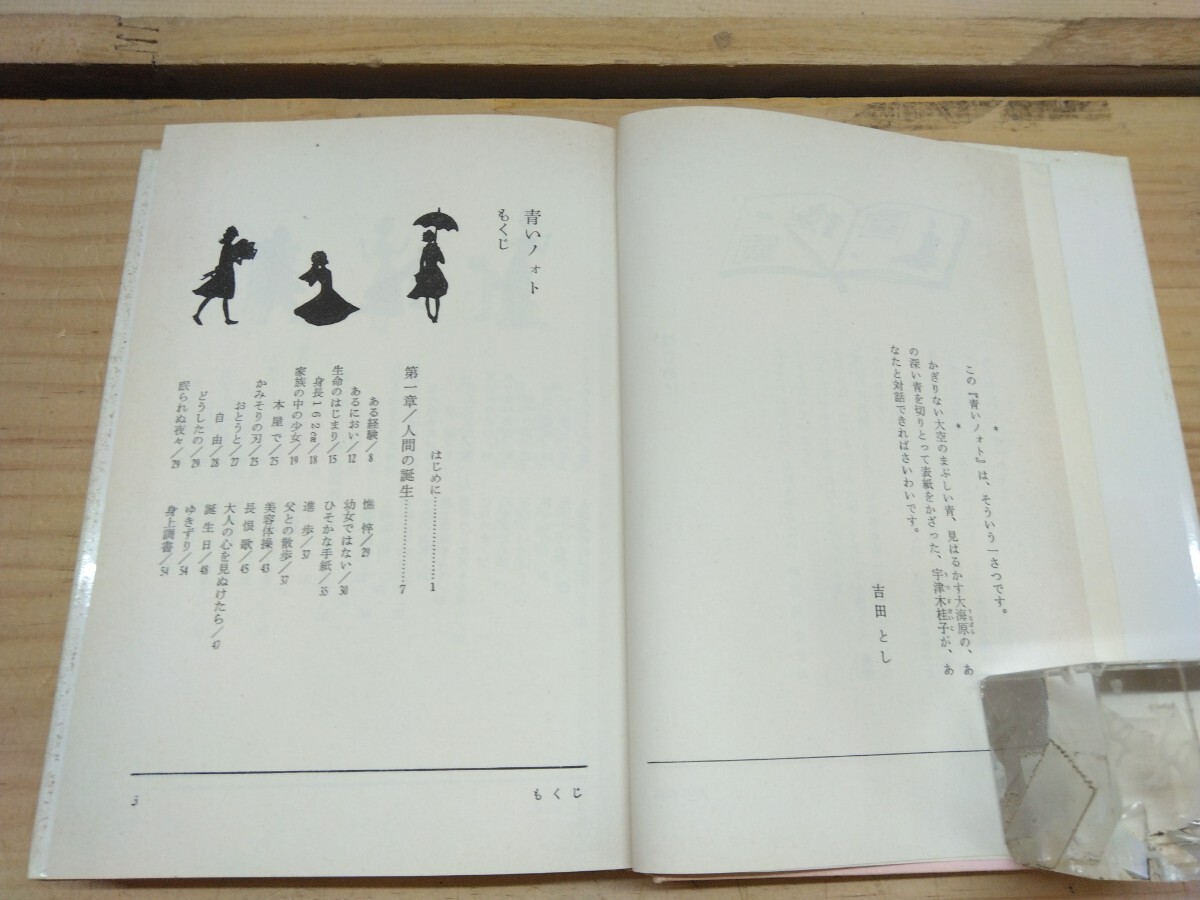 この『青いノォト』は、そういう一さつです。
*　　*
かぎりない大空のまぶしい青、見はるかす大海原の、あ
の深い青を切りとって表紙をかざった、宇津木桂子が、あ
なたと対話できればさいわいです。
吉田とし
青いノォト
もくじ
はじめに…………………1
第一章/人間の誕生…………7
ある経験/8
あるにおい/12
生命のはじまり/15
身長162cm/18
家族の中の少女/19
本屋で/25
かみそりの刃/25
おとうと/27
自由/28
どうしたの/29
眠られぬ夜々/29
憔悴/29
幼女ではない/30
ひそかな手紙/35
進歩/37
父との散歩/37
美容体操/43
長恨歌/45
大人の心を見ぬけたら/47
誕生日/48
ゆきずり/54
身上調書/54
もくじ
3